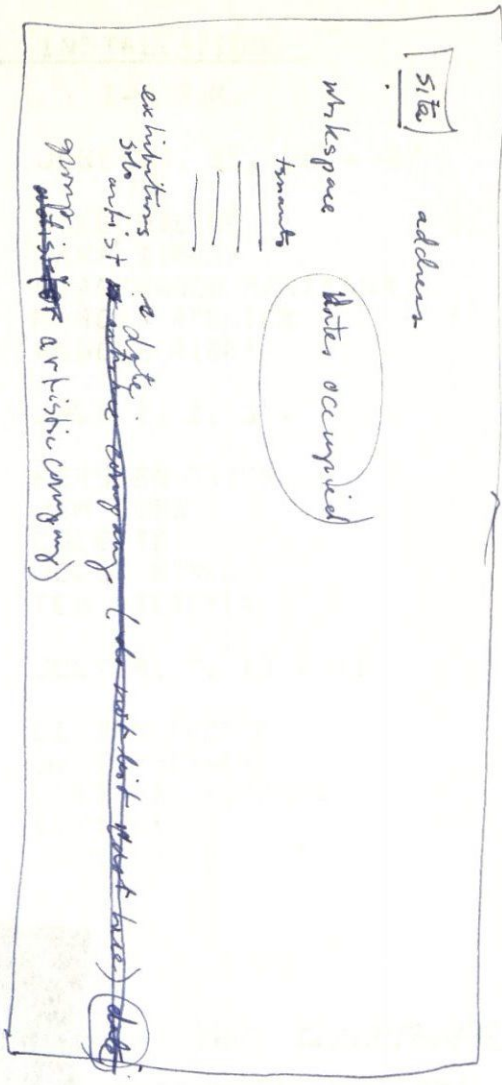 Site address
workspace dates occupied
tenants
exhibitions & date
solo artist or entire company (do not list & dot base) date
group artistic company)